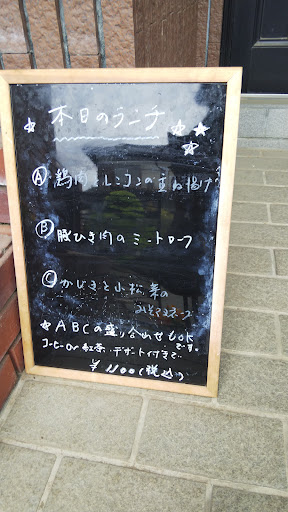 本日のランチ
Ⓐ 鶏肉とレンコンの重ね揚げ
Ⓑ 豚ひき肉のミートローフ
Ⓒ かじきと小松菜の
★ ABCの盛り合わせもok
です。
コーヒーOr紅茶、デザート付きで
¥1100(税込)